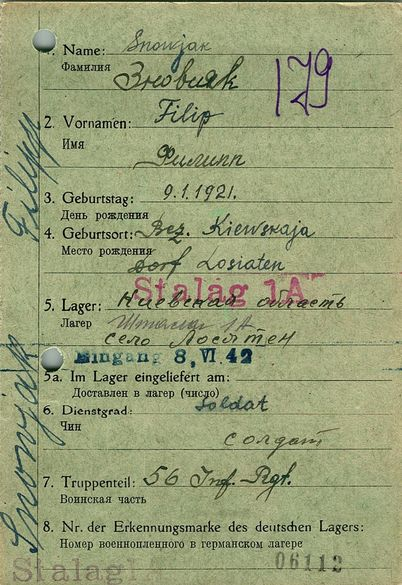 1. Name: Snowjak
Фамилия Зновияк
179
2. Vornamen: Filip
Имя Филипп
3. Geburtstag: 9.1.1921.
День рождения
4. Geburtsort: Bez. Kiewskaja
Место рождения Dorf Losiaten
Stalag 1A
5. Lager: Киевская область
Лагерь Шталаг 1A
село Лосятен
Eingang 8. VI. 42
5a. Im Lager eingeliefert am:
Доставлен в лагер (число)
6. Dienstgrad: Soldat
Чин солдат
7. Truppenteil: 56 Inf. Rgt.
Воинская часть
8. Nr. der Erkennungsmarke des deutschen Lagers:
Номер военнопленного в германском лагере
06112
Stalag 1A
Snowjak Filipp